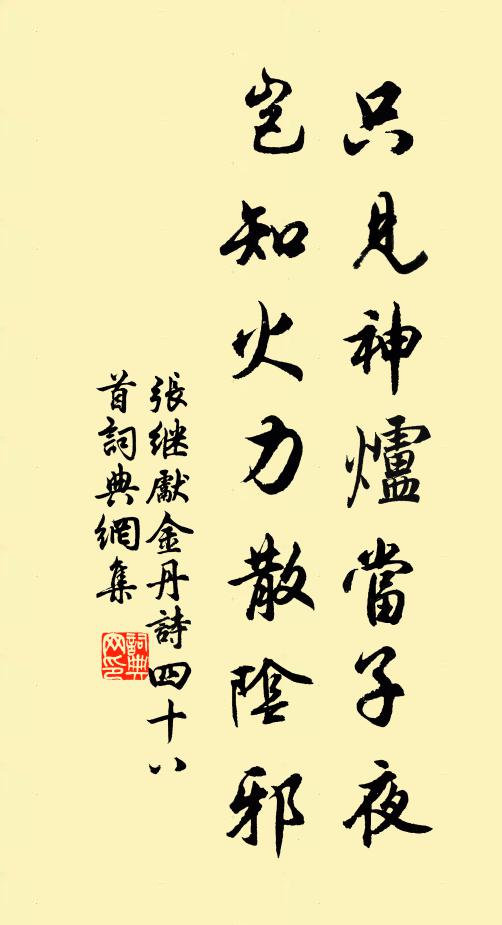 只見神爐當子夜
豈知火力散陰邪
張继獻金丹詩四十八
首詞典網集
詞典网印